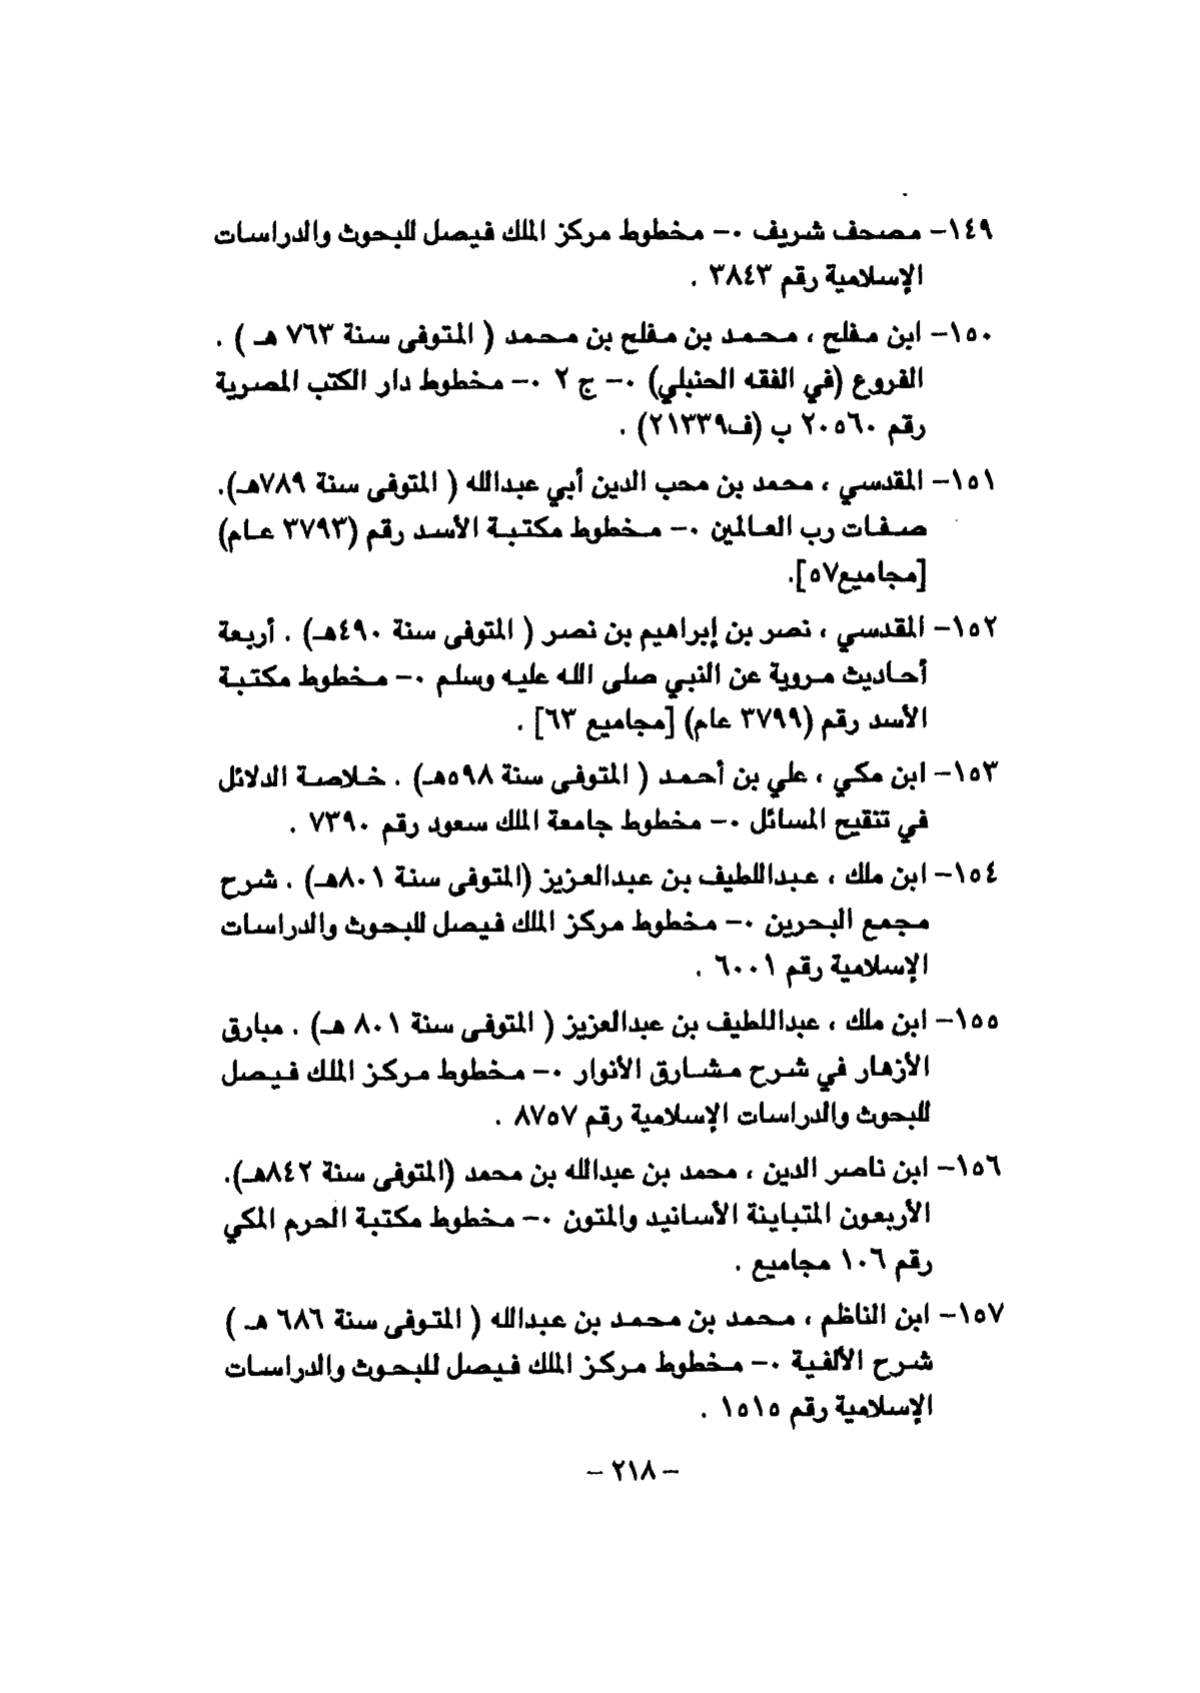 ١٤٩- مصحف شريف ٠- مخطوط مركز الملك فيصل للبحوث والدراسات
الإسلامية رقم ٣٨٤٣ .
١٥٠- ابن مفلح ، محمد بن مفلح بن محمد ( المتوفى سنة ٧٦٣ هـ ) .
الفروع (في الفقه الحنبلي) ٠- ج ٢ ٠- مخطوط دار الكتب المصرية
رقم ٢٠٥٦٠ ب (ف٢١٣٣٩) .
١٥١- المقدسي ، محمد بن محب الدين أبي عبدالله ( المتوفى سنة ٧٨٩هـ).
صفات رب العالمين ٠- مخطوط مكتبة الأسد رقم (٣٧٩٣ عام)
[مجاميع٥٧].
١٥٢- المقدسي ، نصر بن إبراهيم بن نصر ( المتوفى سنة ٤٩٠هـ) . أربعة
أحاديث مروية عن النبي صلى الله عليه وسلم ٠- مخطوط مكتبة
الأسد رقم (٣٧٩٩ عام) [مجاميع ٦٣] .
١٥٣- ابن مكي ، علي بن أحمد ( المتوفى سنة ٥٩٨هـ) . خلاصة الدلائل
في تنقيح المسائل ٠- مخطوط جامعة الملك سعود رقم ٧٣٩٠ .
١٥٤- ابن ملك ، عبداللطيف بن عبدالعزيز (المتوفى سنة ٨٠١هـ) . شرح
مجمع البحرين ٠- مخطوط مركز الملك فيصل للبحوث والدراسات
الإسلامية رقم ٦٠٠١ .
١٥٥- ابن ملك ، عبداللطيف بن عبدالعزيز ( المتوفى سنة ٨٠١ هـ) . مبارق
الأزهار في شرح مشارق الأنوار ٠- مخطوط مركز الملك فيصل
للبحوث والدراسات الإسلامية رقم ٨٧٥٧ .
١٥٦- ابن ناصر الدين ، محمد بن عبدالله بن محمد (المتوفى سنة ٨٤٢هـ).
الأربعون المتباينة الأسانيد والمتون ٠- مخطوط مكتبة الحرم المكي
رقم ١٠٦ مجاميع .
١٥٧- ابن الناظم ، محمد بن محمد بن عبدالله ( المتوفى سنة ٦٨٦ هـ )
شرح الألفية ٠- مخطوط مركز الملك فيصل للبحوث والدراسات
الإسلامية رقم ١٥١٥ .
- ٢١٨ -